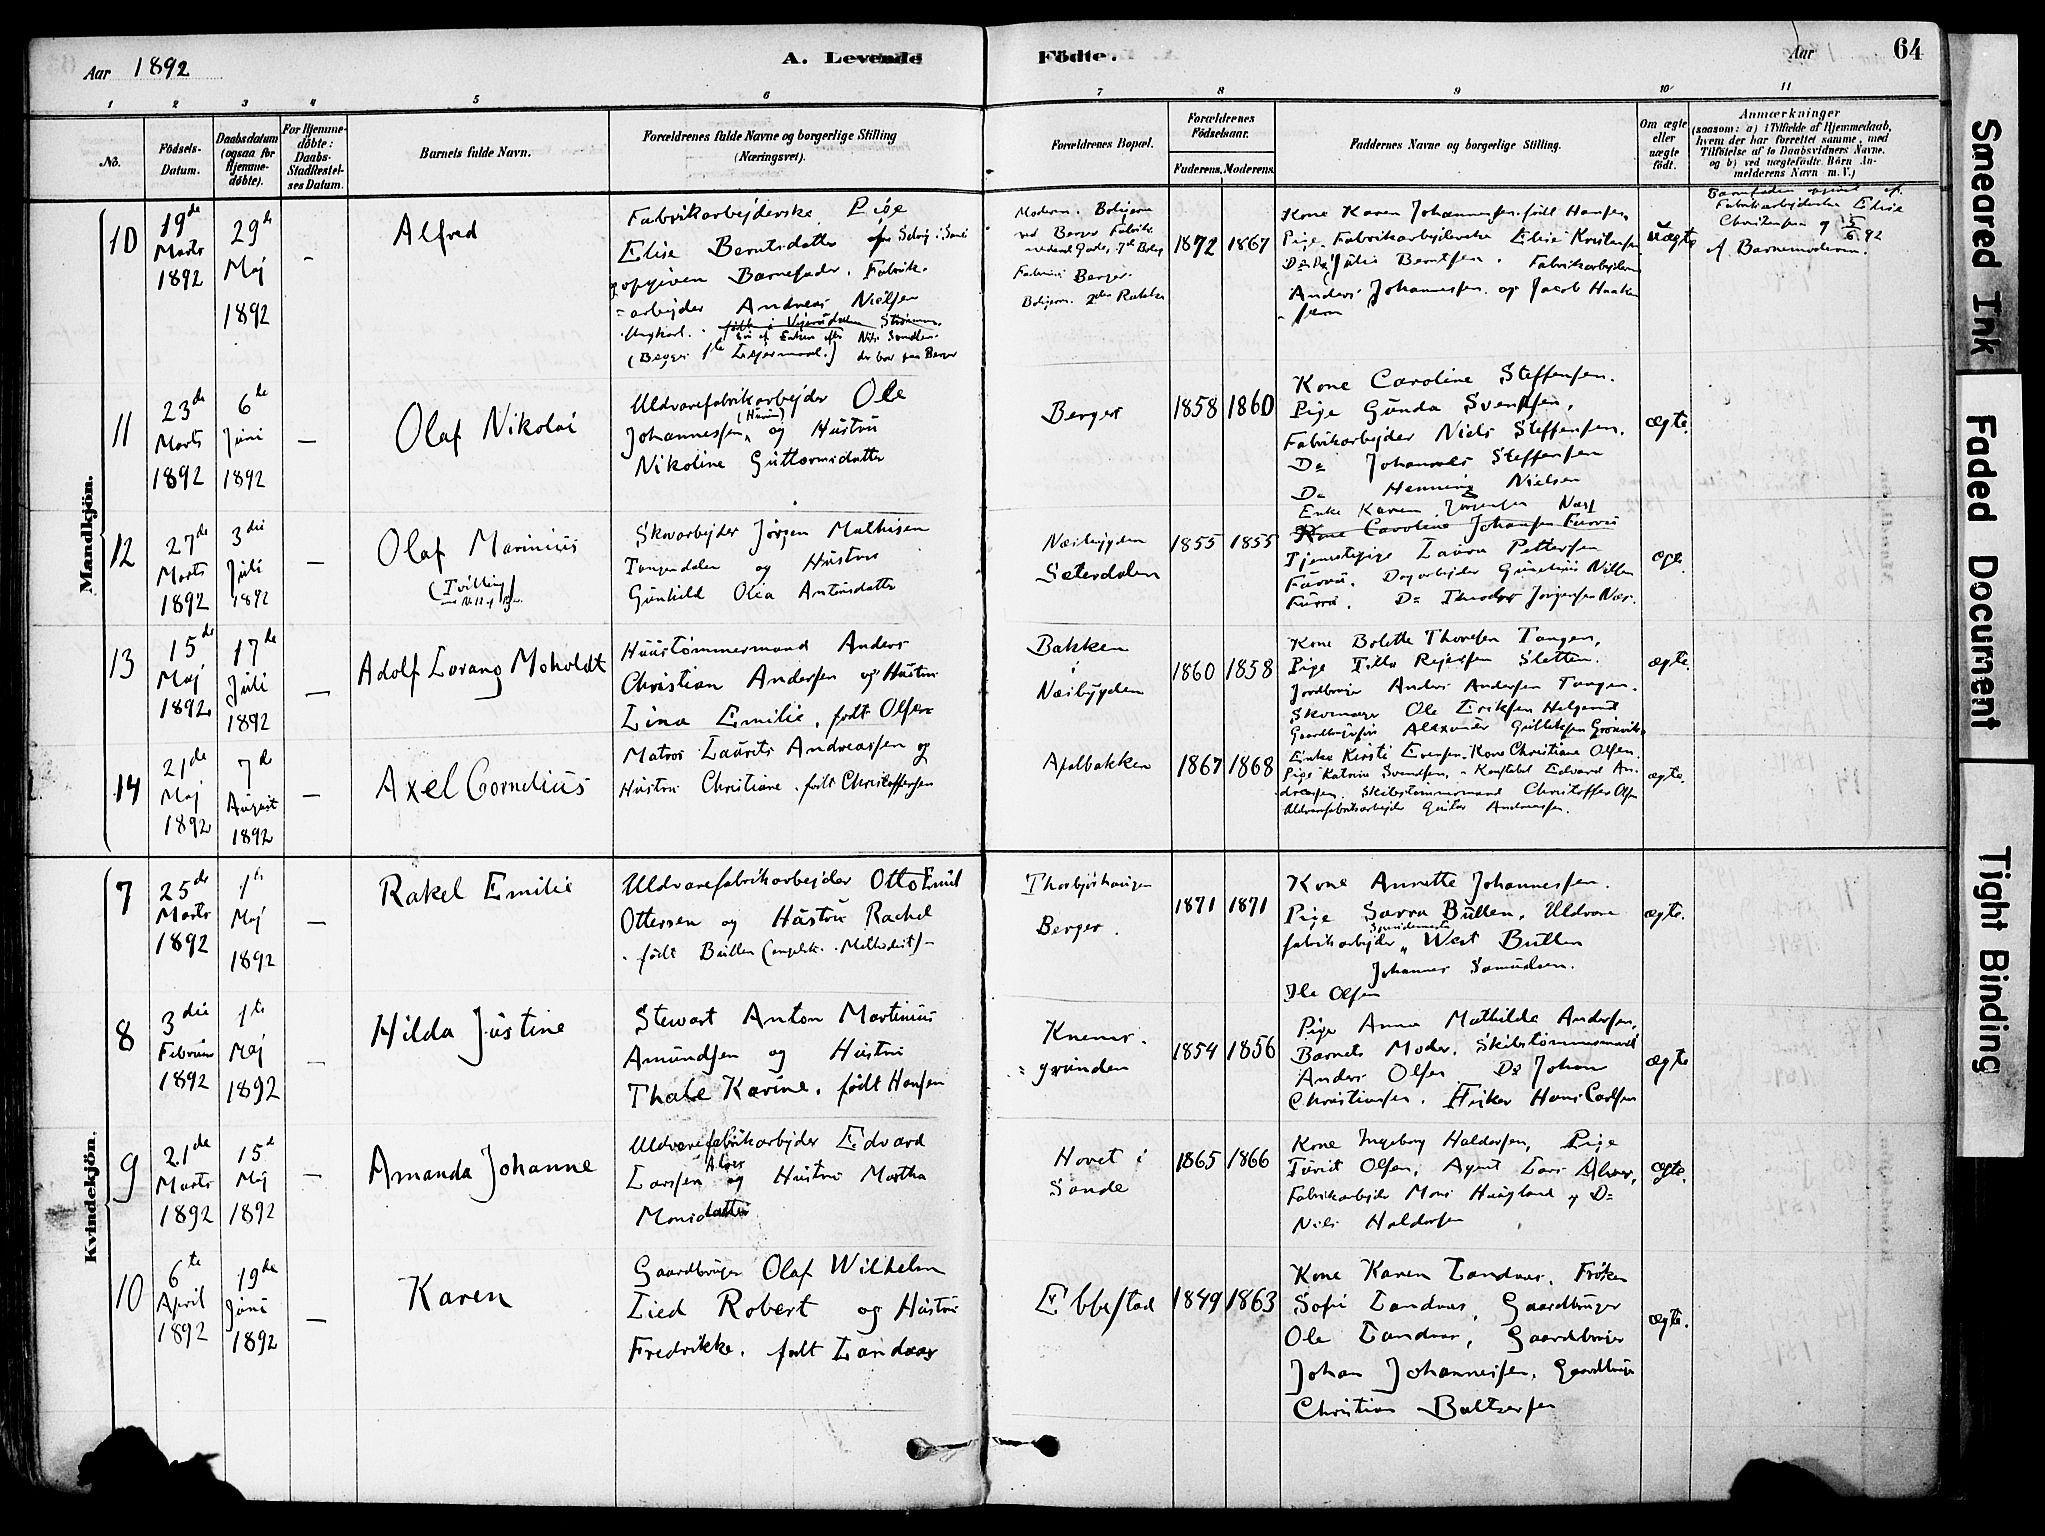 Aar 1892
A. Levende
Fødte.
Aar
64
1
2
3
4
5
6
7
8
9
10
11
No.
Fødsels-
Datum.
Daabsdatum
(ogsaa for
Hjemme-
døbte).
For Hjemme-
døbte:
Daabs-
Stadfæstel-
ses Datum.
Barnets fulde Navn.
Forældrenes fulde Navne og borgerlige Stilling
(Næringsvei).
Forældrenes Bopæl.
Forældrenes
Fødselsaar.
Faderens. Moderens.
Faddernes Navne og borgerlige Stilling.
Om ægte
eller
uægte
født.
Anmærkninger
(saasom: a) i Tilfælde af Hjemmedaab,
hvem der har forrettet samme, med
Tilføielse af to Daabsvidners Navne,
og b) ved uægtefødte Børn An-
melderens Navn m. V.)
Mandkjön.
10
19de
Marts
1892
29de
Maj
1892
-
Alfred
Fabrikarbejderske Pige
Elise Berntsdatter
opgiven Barnefader. Fabrik-
arbejder Andreas Nielsen
Ungkarl.
(Begges 1ste Lejermaal.)
Moderen. Boligerne
ved Berger Fabrik.
Faderens Berger.
1872
1867
Kone Karen Johannessen født Hansen,
Pige Fabrikarbejderske Elise Kristensen
Do Do Julie Berntsen. Fabrikarbejderne
Anders Johannessen og Jacob Haaken-
sen
Uægte
Barnefaderen opgivet af
Fabrikarbejderske Elise
Christensen og
af Barnemoderen.
11
23de
Marts
1892
6te
Juni
1892
-
Olaf Nikolai
Uldvarefabrikarbejder Ole
Johannessen og Hustru
Nikoline Guttormsdatter
Berger
1858
1860
Kone Caroline Steffensen.
Pige Gunda Svendsen,
Fabrikarbejder Niels Steffensen.
Do Johannes Steffensen
Do Henning Nielsen
ægte.
12
27de
Marts
1892
3die
Juli
1892
-
Olaf Marinius
(Tvilling)
Skovarbejder Jørgen Mathisen
Tangendalen og Hustru
Gunhild Olea Antonsdatter
Nesbygden
Seterdalen
1855
1855
Enke Karen Jørgensen Næss
Kone Caroline Johansen Furru
Tjenestepige Laura Pettersen
Furru. Dagarbejder Gunerius Nilsen
Furru. Do Theodor Jørgensen Næs.
ægte
13
15de
Maj
1892
17de
Juli
1892
-
Adolf Lorang Moholdt
Huustømmermand Anders
Christian Andersen og Hustru
Lina Emilie, født Olsen
Bakken
i
Næsbygden
1860
1858
Kone Bolette Thoresen Tangen,
Pige Tilla Rejersen Sletten.
Jordbruger Anders Andersen Tangen.
Skomager Ole Eriksen Helgerud
Alexander Gulliksen
ægte.
14
21de
Maj
1892
7de
August
1892
-
Axel Cornelius
Matros Laurits Andreassen og
Hustru Christiane, født Christoffersen
Apalbakken
1867
1868
Enke Kirsti Evensen. Kone Christiane Olsen.
Pige Katrine Svendsen, Konstabel Edvard An-
dreasen. Skibstømmermand Christoffer Olsen
Uldvarefabrikarbejder Gustav Andreassen.
ægte.
Kvindekjön.
7
25de
Marts
1892
1ste
Maj
1892
-
Rakel Emilie
Uldvarefabrikarbejder Otto Emil
Ottersen og Hustru Rachel
født Butten (engelsk. Methodist)
Berger.
1871
1871
Kone Annette Johannessen.
Pige Sarra Butten, Uldvare
fabrikarbejder West Butten
Johannes Samuelsen.
Ole Olsen
ægte.
8
3die
Februar
1892
1ste
Maj
1892
-
Hilda Justine
Stewart Anton Martinius
Amundsen og Hustru
Thale Karine, født Hansen
Knems-
grunden
1854
1856
Pige Anna Mathilde Andersen,
Barnets Moder. Skibstømmermand
Anders Olsen Do Johan
Christiansen. Fisker Hans Carlsen
ægte
9
21de
Marts
1892
15de
Maj
1892
-
Amanda Johanne
Uldvarefabrikarbejder Edvard
Larssen Alver og Hustru Martha
Monsdatter
Hovet i
Sande
1865
1866
Kone Ingeborg Haldorsen, Pige
Turid Olsen, Agent Lars Alver,
Fabrikarbejder Mons Haugland og Do
Nils Haldorsen
ægte.
10
6te
April
1892
19de
Juni
1892
-
Karen
Gaardbruger Olaf Wilhelm
Lied Robert og Hustru
Fredrikke, født Landaas
Ebbestad
1849
1863
Kone Karen Landaas, Frøken
Sofie Landaas, Gaardbruger
Ole Landaas, Gaardbruger
Johan Johannessen, Gaardbruger
Christian Baltzersen
ægte.
Smeared Ink
Faded Document
Tight Binding